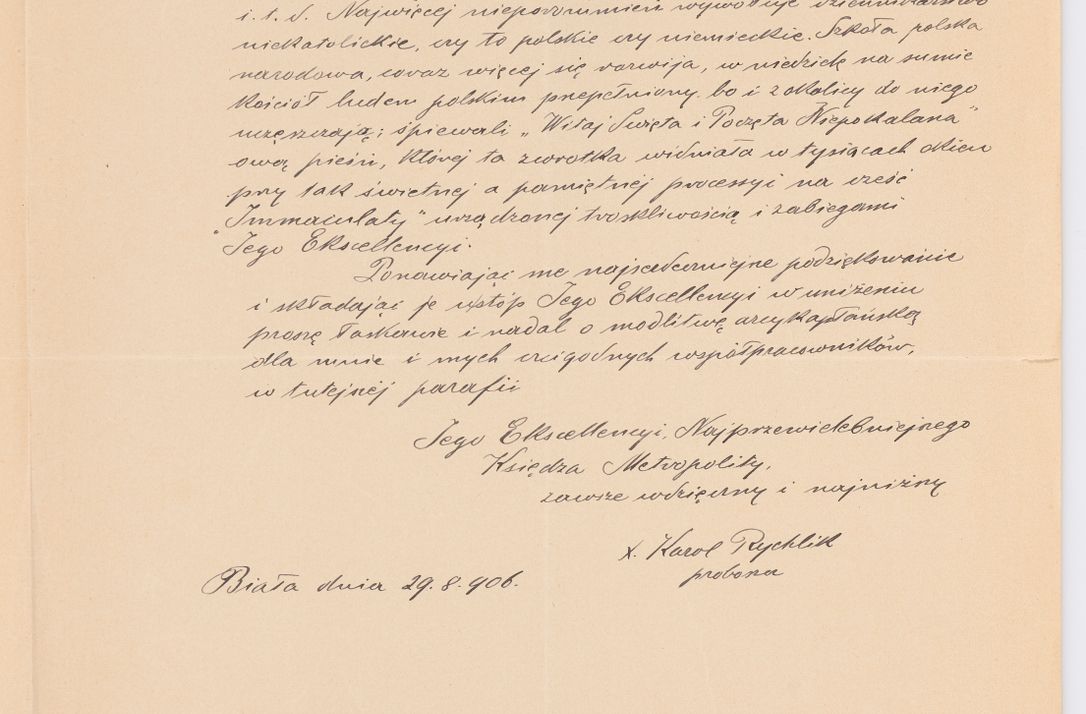 i. t. d. Najwięcej nieporozumień wywołuje dziennikarstwo
niekatolickie, czy to polskie czy niemieckie. Szkoła polska
narodowa, coraz więcej się rozwija, w niedzielę na sumie
kościół ludem polskim przepełniony. bo i z okolicy do niego
uczęszczają; śpiewali „Witaj Święta i Poczęta Niepokalana"
ową pieśń, której ta zwrotka widniała w tysiącach
przy tak świetnej a pamiętnej processyi na cześć
„Immaculaty" urządzonej troskliwością i zabiegami
Jego Ekscellencyi.
Ponawiając me najserdeczniejsze podziękowanie
i składając je u stóp Jego Ekscellencyi w uniżeniu
proszę łaskawie i nadal o modlitwę arcykapłańską
dla mnie i mych czcigodnych współpracowników,
w tutejszej parafii
Jego Ekscellencyi, Najprzewielebniejszego
Księdza Metropolity,
zawsze wdzięczny i najniższy
x. Karol Rychlik
proboszcz
Biała dnia 29. 8. 906.